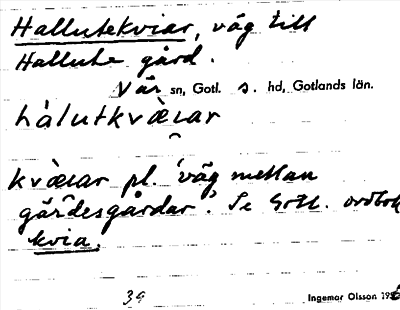 Hallutekviar, väg till
Hallute gård.
När sn, Gotl. s. hd, Gotlands län.
hàlutkvàrar
kvàrar pl. 'väg mellan
gärdesgårdar'. Se Gotl. ordbok
kvia.
39
Ingemar Olsson 195